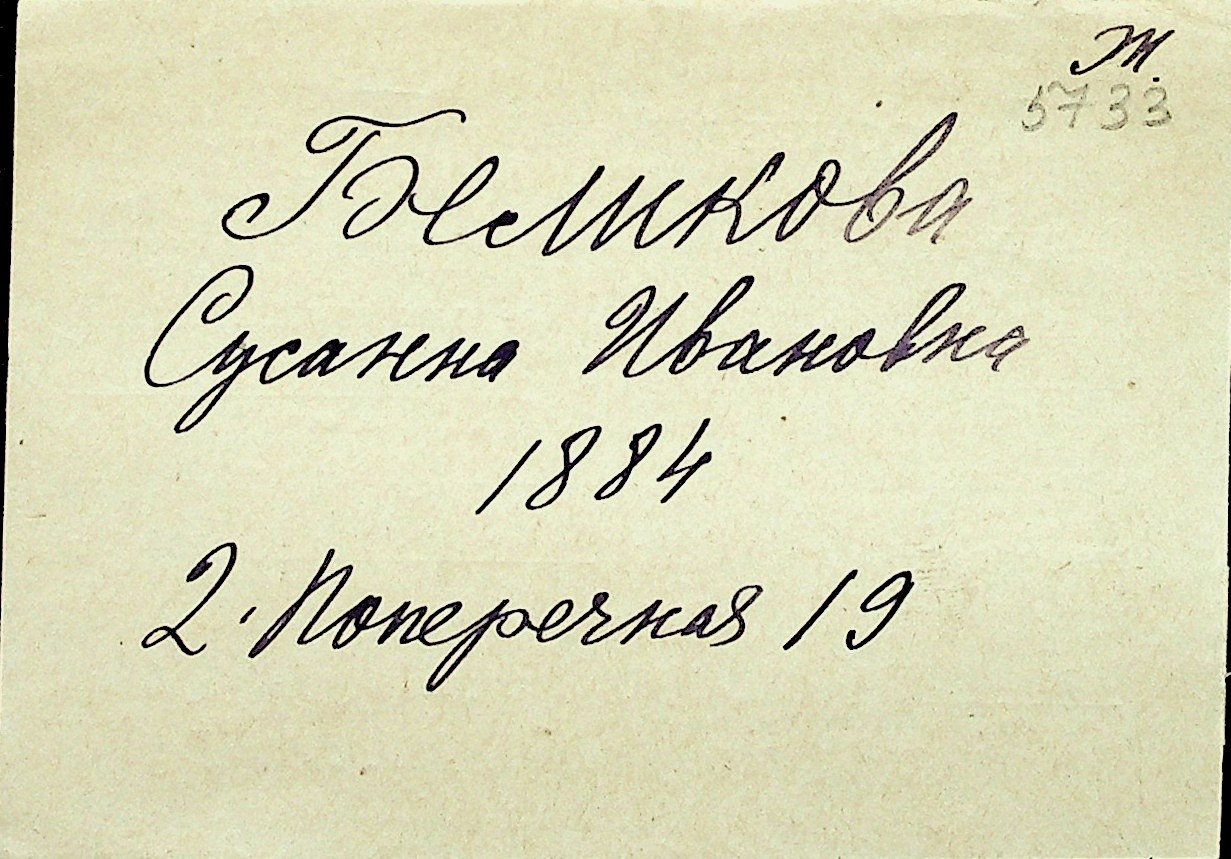 Ж.
5733
Беликова
Сусанна Ивановна
1884
2. Поперечная 19